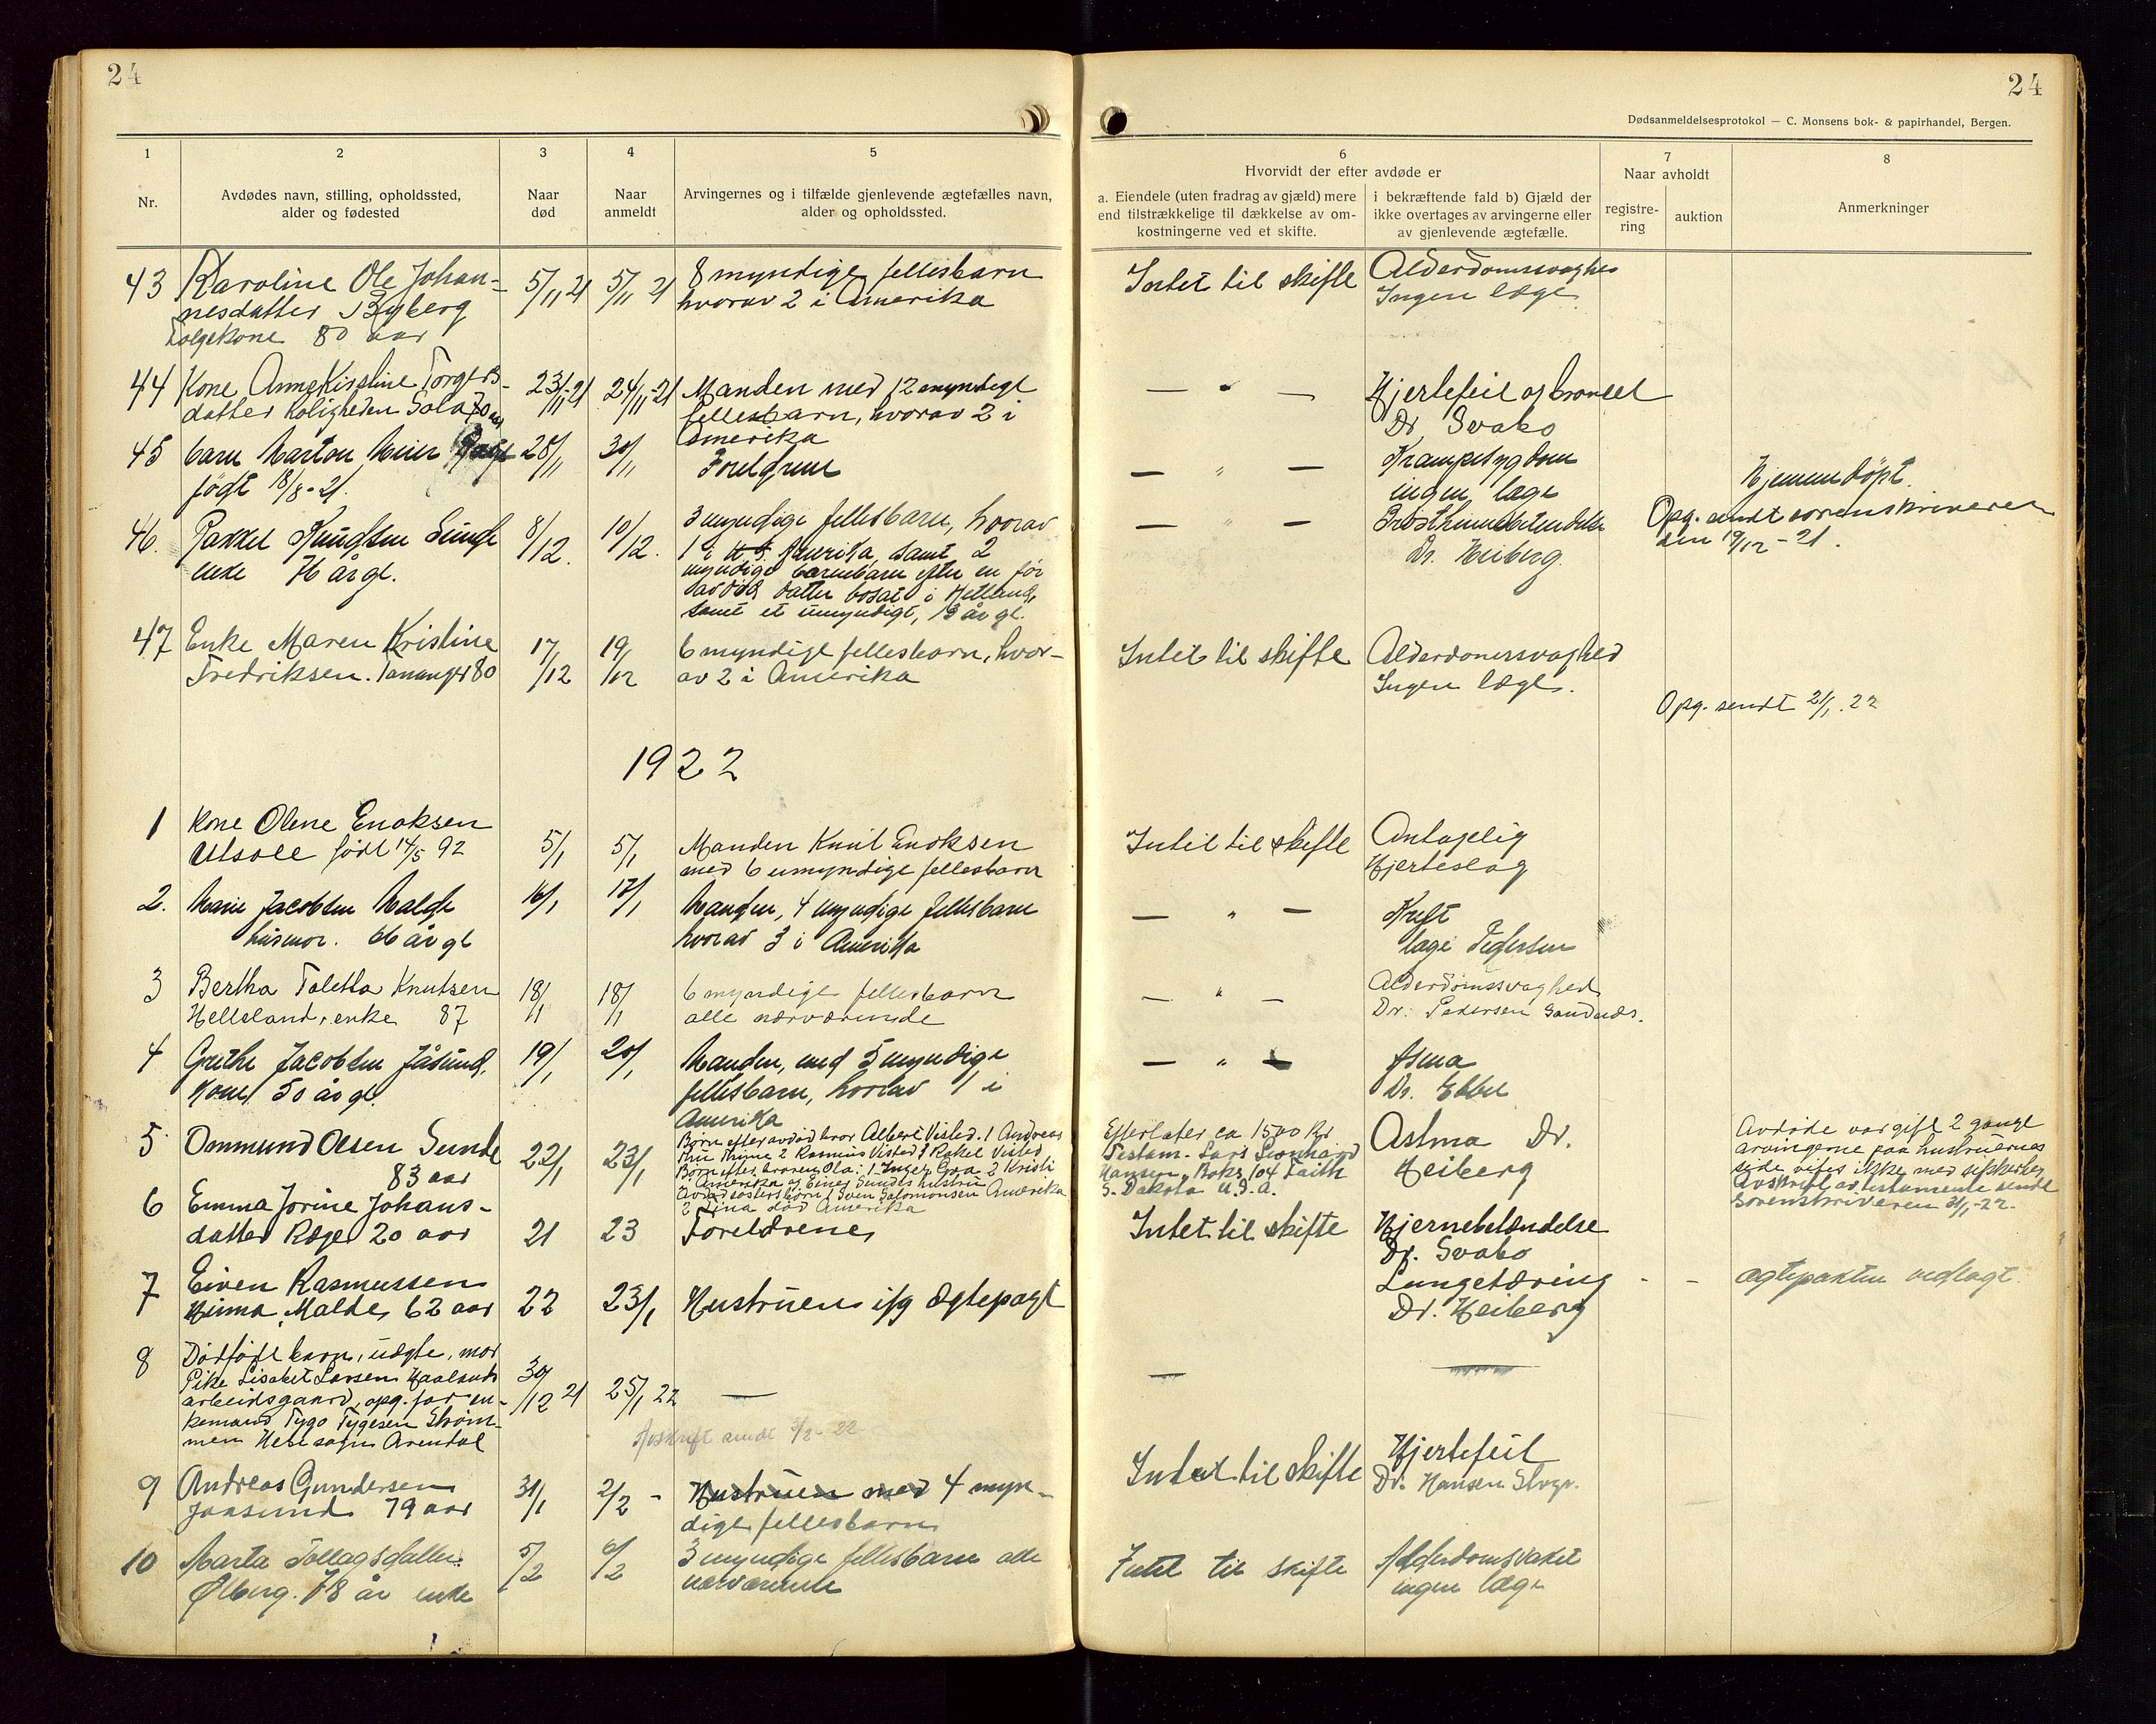 24
24
Dødsanmeldelsesprotokol — C. Monsens bok- & papirhandel, Bergen.
1
2
3
4
5
6
7
8
Nr.
Avdødes navn, stilling, opholdssted,
alder og fødested
Naar
død
Naar
anmeldt
Arvingernes og i tilfælde gjenlevende ægtefælles navn,
alder og opholdssted.
Hvorvidt der efter avdøde er
a. Eiendele (uten fradrag av gjæld) mere
end tilstrækkelige til dækkelse av om-
kostningerne ved et skifte.
i bekræftende fald b) Gjæld der
ikke overtages av arvingerne eller
av gjenlevende ægtefælle.
Naar avholdt
registre-
ring
auktion
Anmerkninger
43 Karoline Ole Johan- 5/11 21 5/11 21 8 myndige fellesbarn Intet til skifte Alderdomssvaghed
nesdatter Byberg hvorav 2 i Amerika Ingen læge
Folgekone 80 aar
44 Kone Anne Kirstine Torgers- 23/11-21 24/11-21 Manden med 12 myndige — " — Hjertefeil og
datter Roligheden Sola 70 aar fellesbarn, hvorav 2 i Dr. Svabo
Amerika
45 barn Marton Meier 28/11 30/11 Foreldrene — " — Krampesygdom Hjemmedöpt.
födt 18/8-21. ingen læge
46. Rakkel Knudsen Sunde 8/12. 10/12. 3 myndige fellesbarn, hvorav — " — Brysthinnebetendelse Opg. sendt sorenskriveren
enke 76 år gl. 1 i Amerika, samt 2 Dr. Heiberg. den 19/12-21.
myndige barnebarn efter en før
avdød datter bosat i Hetland,
samt et umyndigt, 13 år gl.
47 Enke Maren Kristine 17/12 19/12 6 myndige fellesbarn, hvor- Intet til skifte Alderdomssvaghed
Fredriksen. Tananger 80 av 2 i Amerika Ingen læge.
Opg. sendt 21/1. 22
1922
1 Kone Olene Enoksen 5/1 5/1 Manden Knut Enoksen Intet til skifte Antagelig
Utsole født 14/5 92 med 6 umyndige fellesbarn Hjerteslag
2. Marie Jacobsen Malde 16/1 17/1 Manden, 4 myndige fellesbarn — " — Kreft
husmor. 66 år gl hvorav 3 i Amerika læge Pedersen
3 Bertha Taletta Knutsen 18/1 18/1 6 myndige fellesbarn — " — Alderdomssvaghed
Helleland, enke 87 alle nærværende Dr. Pedersen Sandnes.
4 Grethe Jacobsen Jåsund, 19/1 20/1 Manden, med 5 myndige — " — Asma
Kone 50 år gl. fellesbarn, hvorav 1 i Dr. Ebbel
Amerika
5 Ommund Olsen Sunde 22/1 23/1 Børn efter avdød bror Albert Visted. 1 Andreas Efterlater ca 1500 Kr. Astma Dr. Avdøde var gift 2 gange
83 aar 2 Rasmus Visted 3 Rakel Visted Testam. Lars Leonhard Heiberg arvingerne paa hustruernes
Børn efter broren Ola: 1 Inger Goa 2 Kristi Hansen, Boks 104 Faith side vites ikke med sikkerhet
Amerika og Einer Sundes hustru S. Dakota U.S.A. Avskrift av testamente sendt
Avdød søsters børn 1 Sven Salomonsen Amerika sorenskriveren 31/1-22.
2 Lina død Amerika
6 Emma Jorine Johans- 21 23 Foreldrene, Intet til skifte Hjernebetændelse
datter Ræge 20 aar Dr. Svabo
7 Eiven Rasmussen 22 23/1 Hustruen ifg ægtepagt Lungetæring - - ægtepakten vedlagt.
Hinna, Malde, 62 aar Dr. Heiberg
8 Dødfødt barn, uægte, mor 30/12 21 25/1 22 — — —
Pike Lisabet Larsen Haalands
arbeidsgaard, opg. far en-
kemand Tygo Tygesen Strøm-
men Hebe sogn Arendal
Avskrift sendt 3/2-22
9 Andreas Gundersen 31/1 2/2 - Hustruen med 4 myn- Intet til skifte Hjertefeil
Jaasund 79 aar dige fellesbarn Dr. Hansen Stvgr.
10 Marta Tollagsdatter. 5/2 6/2 3 myndige fellesbarn alle Intet til skifte Alderdomsvaket
Ølberg. 78 år enke nærværende ingen læge